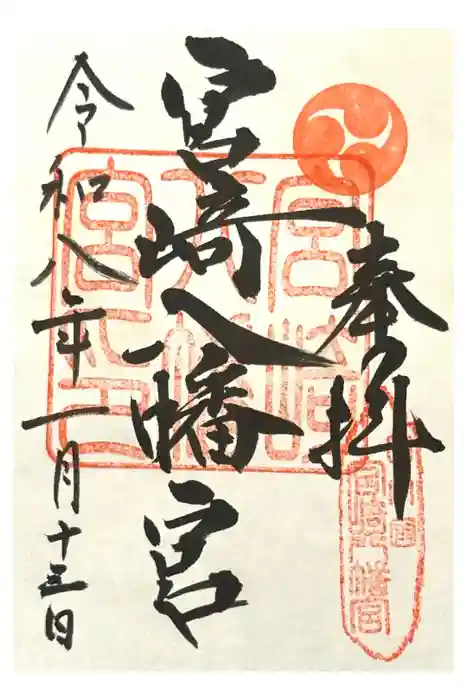 奉拝
宮崎八幡宮
令和八年一月十三日
宮崎八幡宮印
宮崎八幡宮